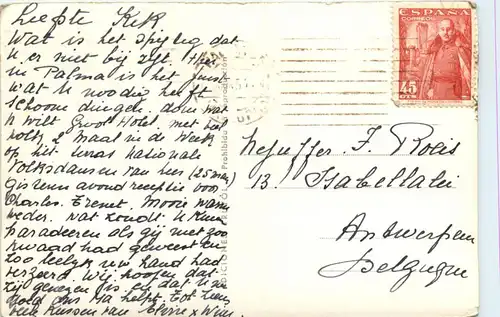 Liefste Kik
Wat is het spijtig dat
u er niet bij zijt. Hier
in Palma is het juist
wat u noodig heeft
Schoone dingen. doen wat
u wilt Groot Hotel, met heel
volk 2 maal in de Week
op het terras Nationale
Volksdansen van hier (25 man)
gisteren avond receptie voor
Charles. Ernest. Mooie warm
weder. Wat zoudt u kunnen
paradeeren als gij niet zoo
kwaad had geweest en
zoo leelijk uw hand had
bezeerd. Wij hopen dat
zij genezen is en dat u ze
goed ons Ma helpt. Tot
vele kussen van Pierre x Wim
ESPAÑA
CORREOS
45
CTS
Mejuffer J. Roeis
13. Isabellalei
Antwerpen
Belgique